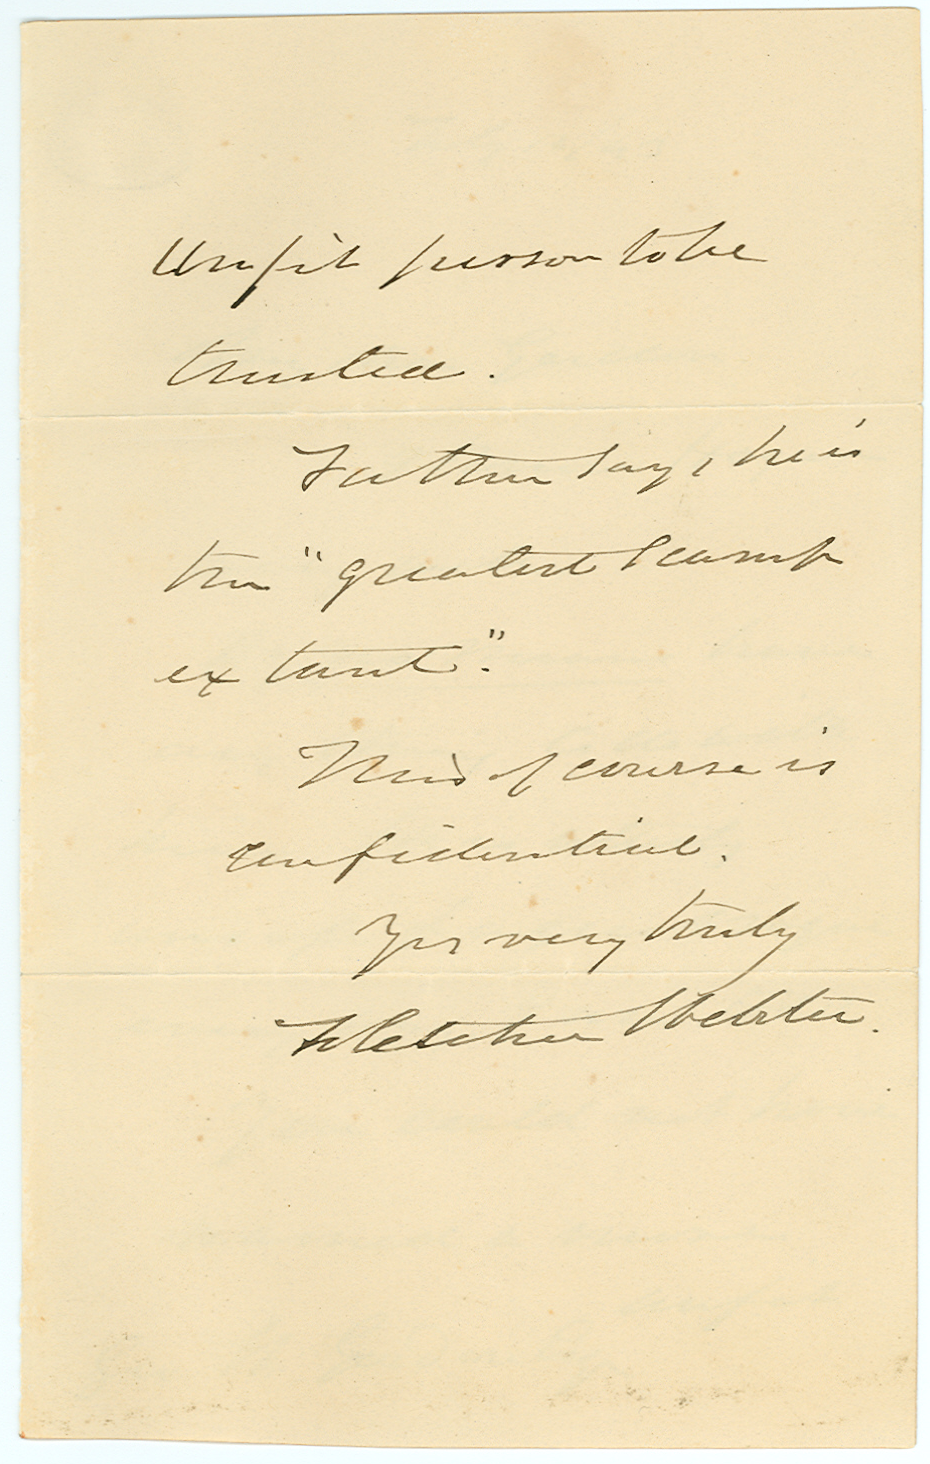 Unfit person to be
trusted.
Father says he is
the "greatest scamp
extant".
This of course is
confidential.
Yrs very truly
Fletcher Webster.